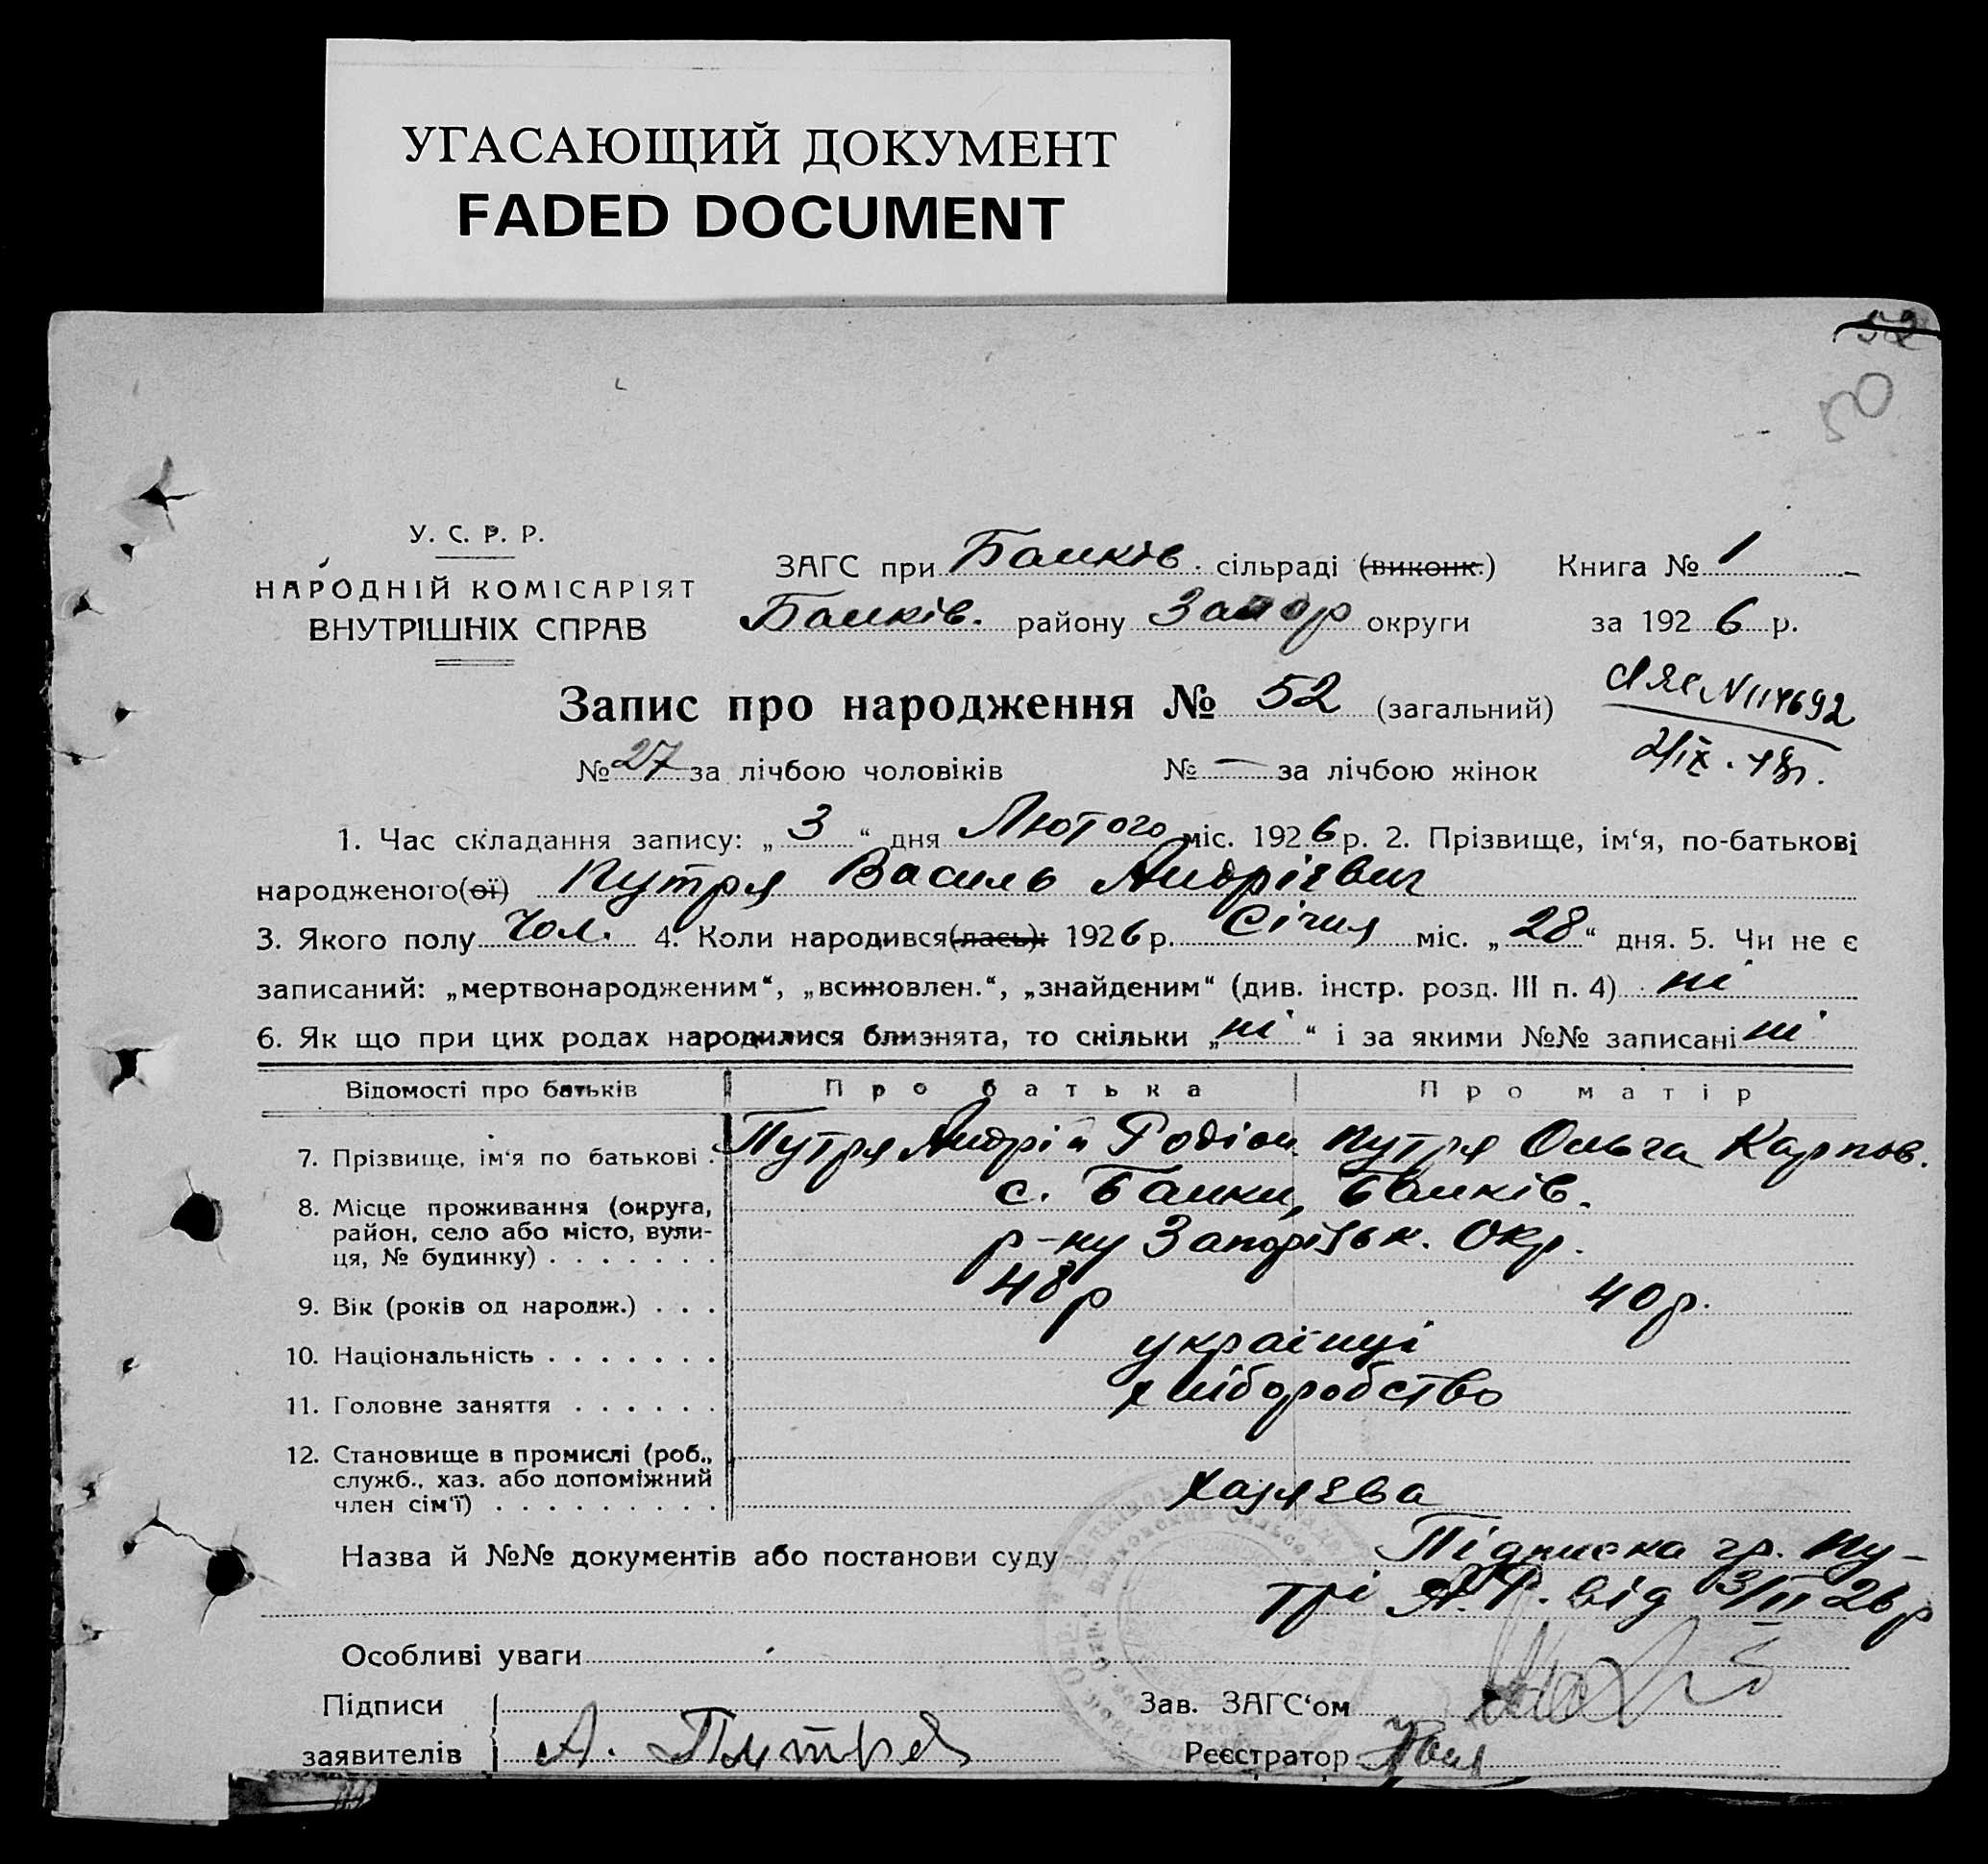 УГАСАЮЩИЙ ДОКУМЕНТ
FADED DOCUMENT
52
50
У. С. Р. Р.
НАРОДНІЙ КОМІСАРІЯТ
ВНУТРІШНІХ СПРАВ
ЗАГС при Балків. сільраді (виконк.) Книга № 1
Балків. району Запор округи за 1926 р.
Запис про народження № 52 (загальний)
№ 27 за лічбою чоловіків № — за лічбою жінок
1. Час складання запису: „3“ дня Лютого міс. 1926 р. 2. Прізвище, ім‘я, по-батькові
народженого(ої) Путря Василь Андрієвич
3. Якого полу Чол. 4. Коли народився(лась): 1926 р. Січня міс. „28“ дня. 5. Чи не є
записаний: „мертвонародженим“, „всиновлен.“, „знайденим“ (див. інстр. розд. III п. 4) ні
6. Як що при цих родах народилися близнята, то скільки „ні“ і за якими №№ записані ні
Відомості про батьків Про батька Про матір
7. Прізвище, ім‘я по батькові . Путря Андрій Родіон. Путря Ольга Карпов.
8. Місце проживання (округа, с. Балки, Балків.
район, село або місто, вули-
ця, № будинку) . . . . . . . р-ну Запорізьк. Окр.
9. Вік (років од народж.) . . . 48 р 40 р.
10. Національність . . . . . . . українці
11. Головне заняття . . . . . . хліборобство
12. Становище в промислі (роб.,
служб., хаз. або допоміжний
член сім‘ї) . . . . . . . . . хазяєва
Назва й №№ документів або постанови суду Підписка гр. Пу-
трі А. Р. від 3/II 26 р
Особливі уваги
Підписи Зав. ЗАГС‘ом
заявителів А. Путря Реєстратор